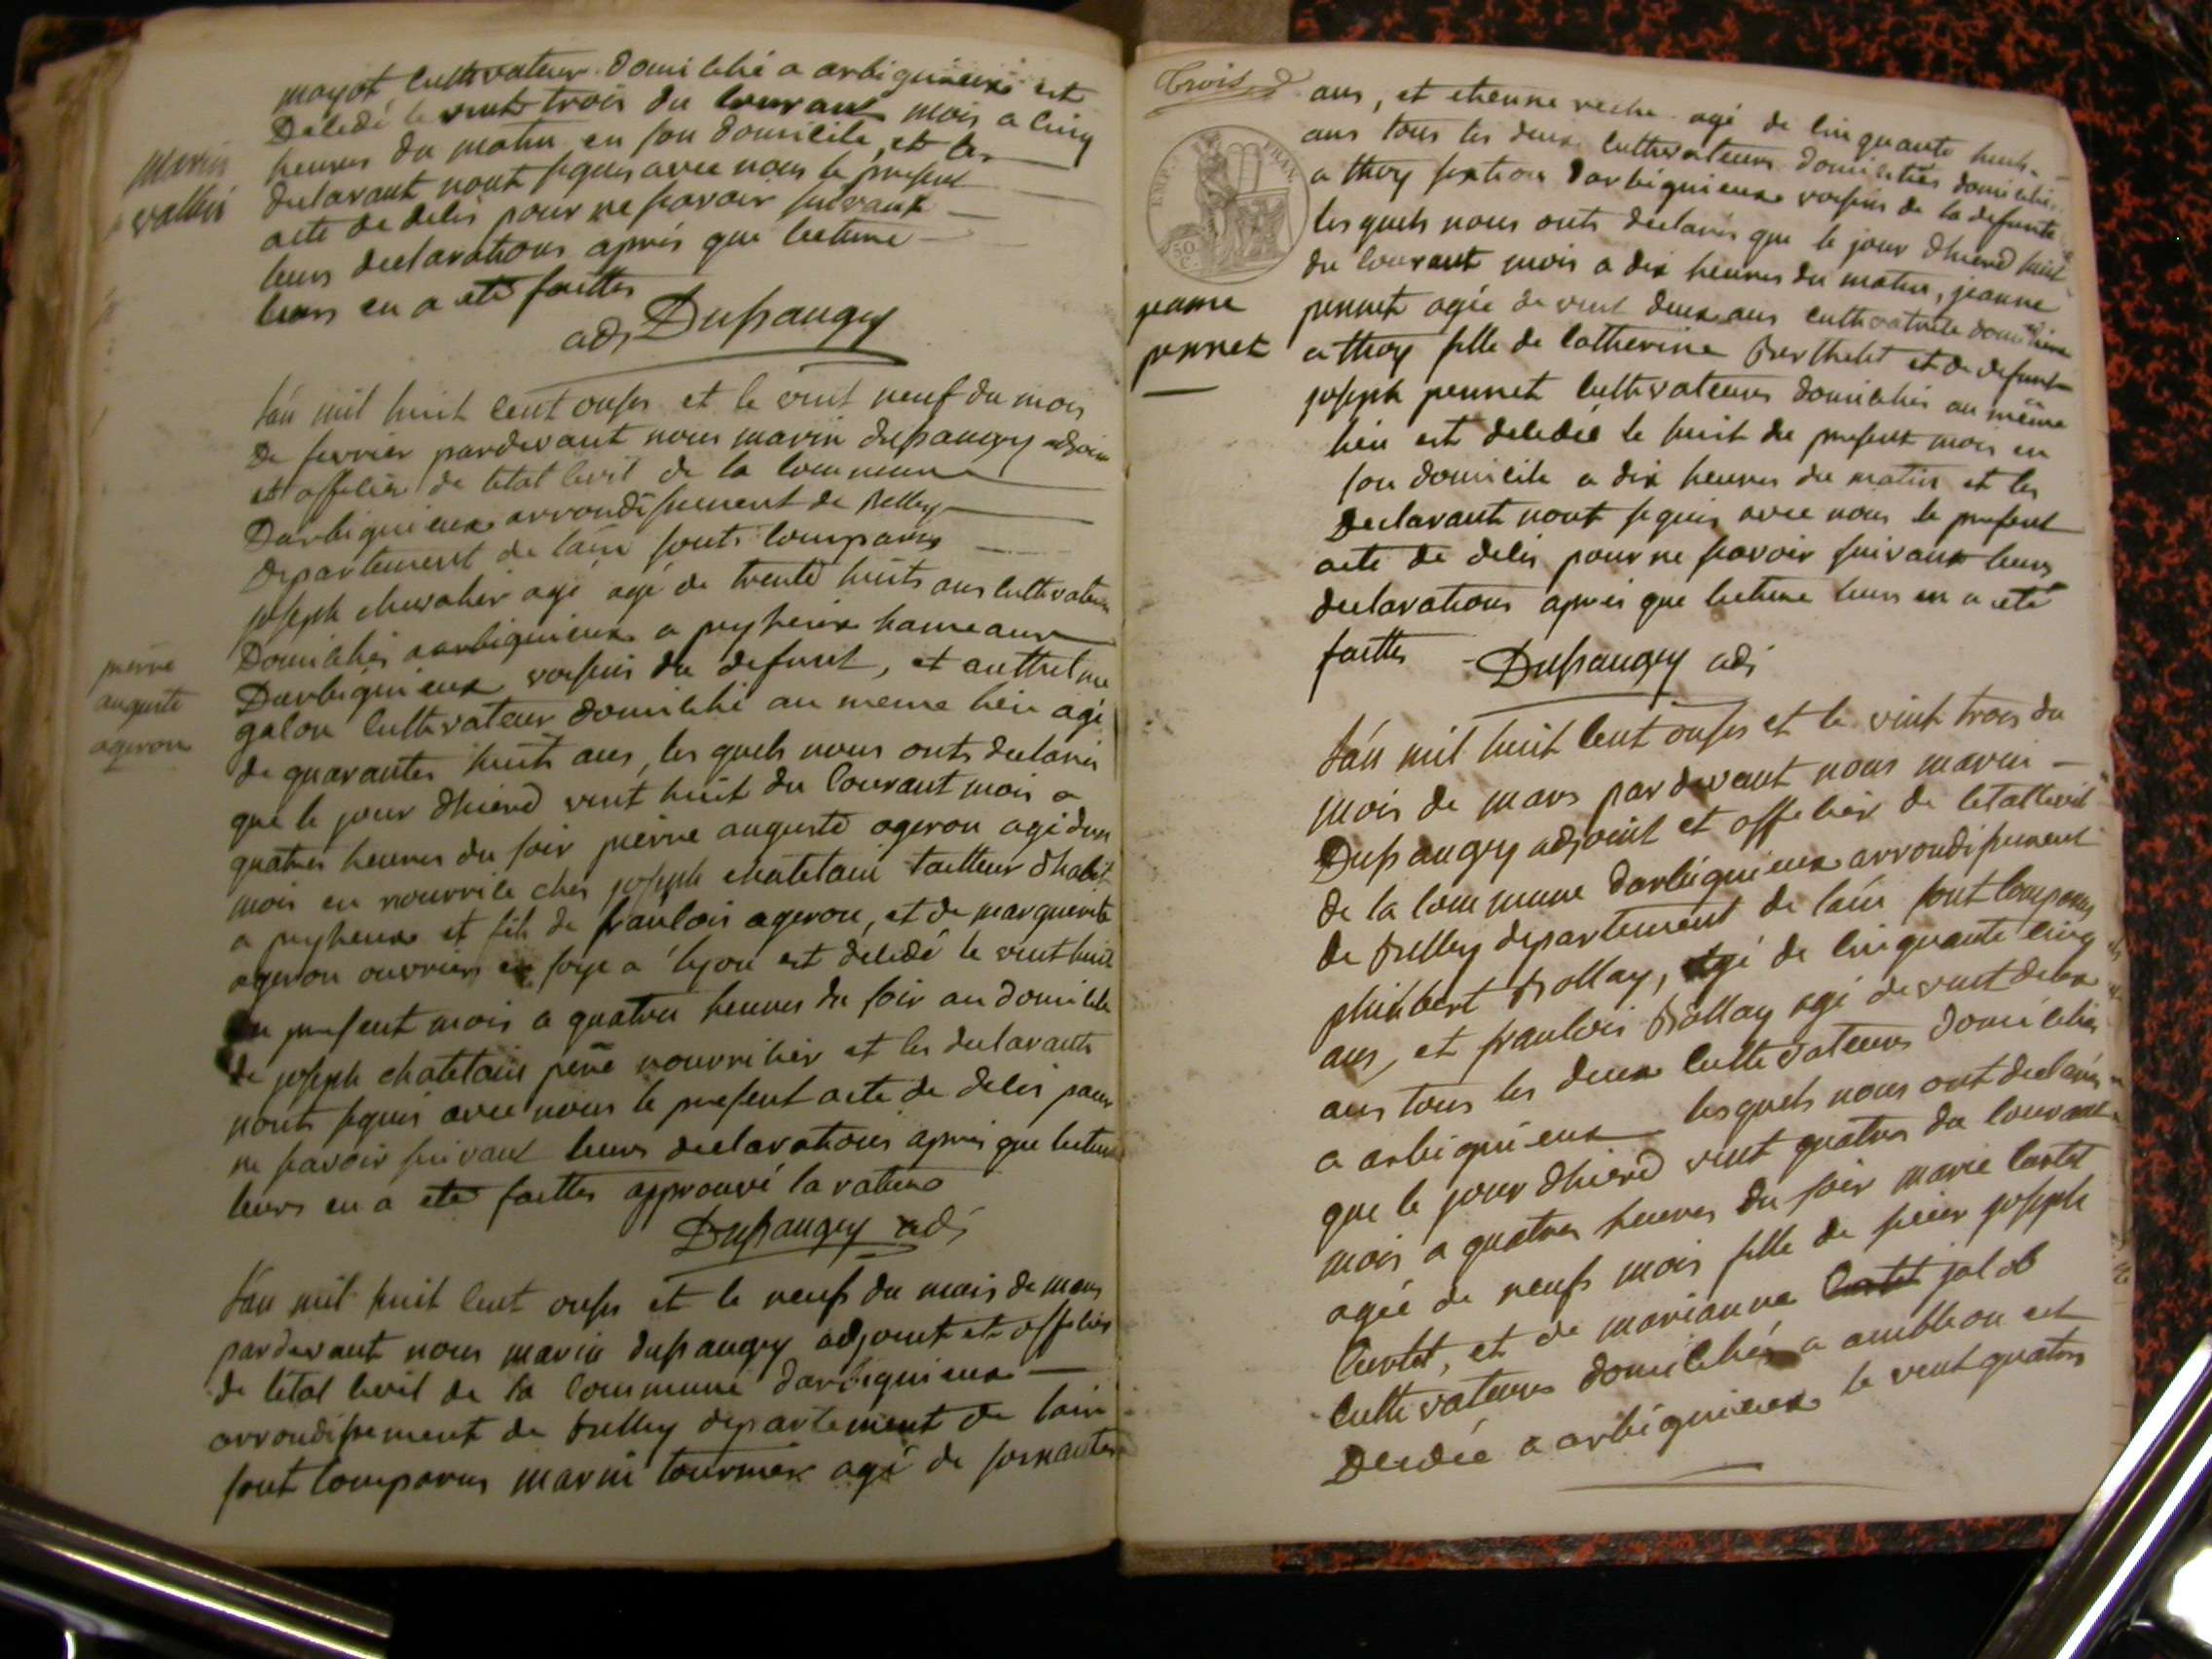 mayot Cultivateur domicilié a arbignieux est
Décédé le vint trois du Courant mois a cinq
heures du matin en son domicile, et les
declarant nont signes avec nous le present
acte de décés pour ne savoir suivant
leurs declarations aprés que lecture
leurs en a eté faittes
marin
vallin
adj Dupraugey
Lán mil huit cent onses et le vint neuf du mois
De fevrier pardevant nous marin dupraugey adjoin
et officier de létat civil de la Commune
Darbignieux arrondissement de Belley
Departement de láin sonts comparus
joseph chevalier agé agé de trente huits ans cultivateur
Domiciliés a arbignieux a peyzieux hameaux
Darbignieux voisins du defunt, et anthelme
galon Cultivateur domicilié au meme lieu agé
de quarantes huits ans, les quels nous onts declarés
que le jour dhiere vint huit du Courant mois a
quatres heures du soir pierre auguste ageron agé dun
mois en nourrice ches joseph chatelain tailleur dhabit
a peyzieux et fils de francois ageron, et de marguerite
ageron ouvriers en soye a lyon est décédé le vint huit
du present mois a quatres heures du soir au domicile
de joseph chatelain pere nourricier et les declarants
nonts signes avec nous le present acte de décés pour
ne savoir suivant leurs declarations aprés que lecture
leurs en a eté faittes approuvé la rature
pierre
auguste
ageron
Dupraugey adj
Lán mil huit cent onses et le neufs du mois de mars
pardevant nous marin dupraugey adjoint et officier
de létat civil de la Commune darbignieux
arrondissement de Belley departement de láin
sont comparus marin tournier agé de soixantes
Trois
EMP. FRAN.
50
C.
ans, et etienne reche agé de cinquante huit
ans tous les deux cultivateurs domiciliés domiciliés
a thoy section darbignieux voisins de la defunte
les quels nous onts declarés que le jour dhiere huit
du Courant mois a dix heures du matin, jeanne
pennet agée de vint deux ans cultivatrice domiciliée
a thoy fille de Catherine Berthelet et de defunt
joseph pennet Cultivateurs domiciliés au même
lieu est décédée le huit du present mois en
son domicile a dix heures du matin et les
Declarant nont signes avec nous le present
acte de décés pour ne savoir suivant leurs
declarations aprés que lecture leurs en a eté
faittes Dupraugey adj
jeanne
pennet
Lán mil huit cent onses et le vint trois du
mois de mars pardevant nous marin
Dupraugey adjoint et officier de létat civil
de la Commune darbignieux arrondissement
de Belley departement de láin sont comparus
philibert Bollay, agé de cinquante cinq
ans, et francois Bollay agé de vint deux
ans tous les deux Cultivateurs domiciliés
a arbignieux les quels nous ont declarés
que le jour dhiere vint quatres du Courant
mois a quatres heures du soir marie Curtet
agée de neufs mois fille de sieur joseph
Curtet, et de marianne Curtet jacob
Cultivateurs domiciliés a ambléon est
Decedée a arbignieux le vent quatres